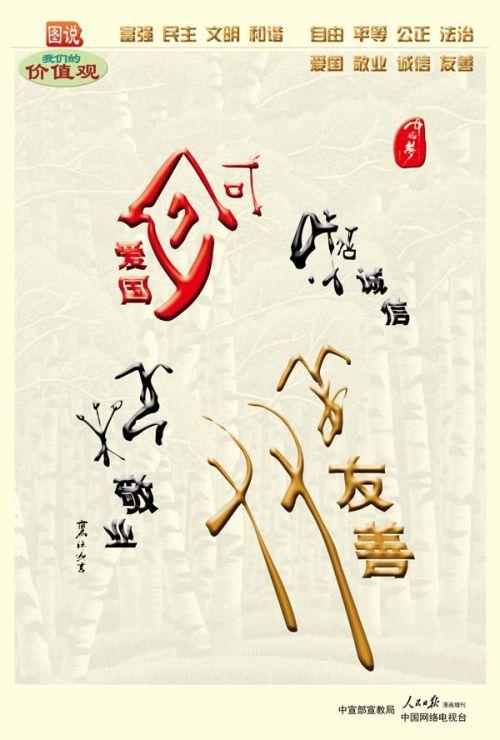 图说
我们的
价值观
富强 民主 文明 和谐 自由 平等 公正 法治
爱国 敬业 诚信 友善
中国梦
爱国
诚信
友善
中宣部宣教局
人民日报 漫画增刊
中国网络电视台